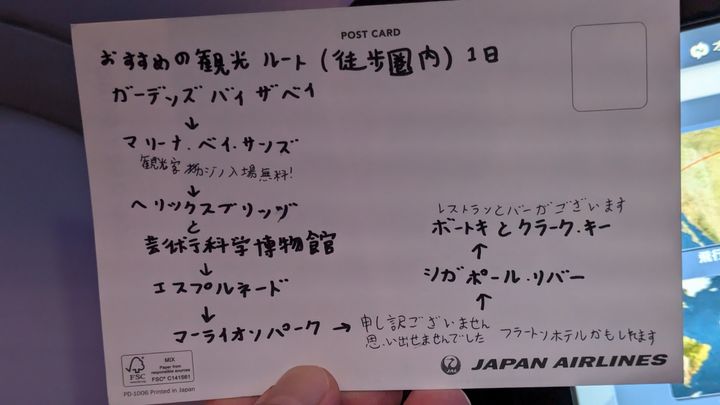 POST CARD
おすすめの観光 ルート (徒歩圏内) 1日
ガーデンズ バイ ザベイ
↓
マリーナ・ベイ・サンズ
観光客 カジノ入場無料!
↓
ヘリックスブリッヅ
と
芸術科学博物館
↓
エスプルネード
↓
マーライオンパーク → 申し訳ございません
思い出せませんでした フラートンホテルかもしれます
↑
シガポール・リバー
↑
ボートキとクラーク・キー
レストランとバーがございます
FSC
MIX
Paper from responsible sources
FSC® C141581
PD-1006 Printed in Japan
JAL JAPAN AIRLINES